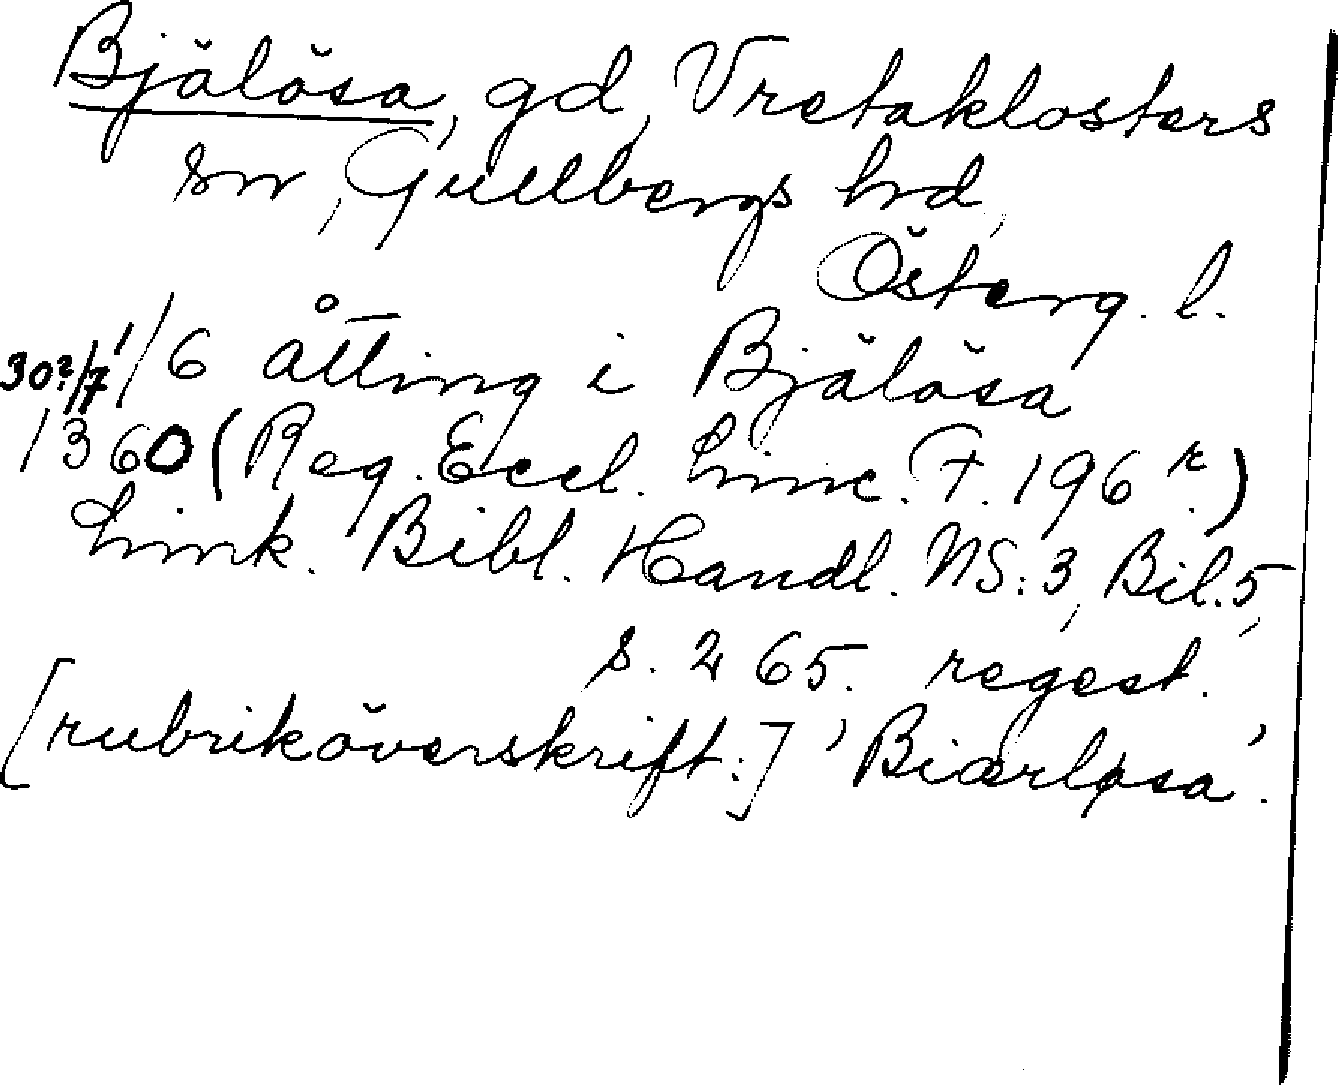 Bjälösa, gd, Vretaklosters
sn, Gullbergs hd,
Österg. l.
30?/7 1/6 åtting i Bjälösa
1360 (Reg. Eccl. Linc. F. 196 r.)
Link. Bibl. Handl. NS: 3, Bil. 5,
s. 265. regest.
[rubriköverskrift:] 'Biærløsa'.